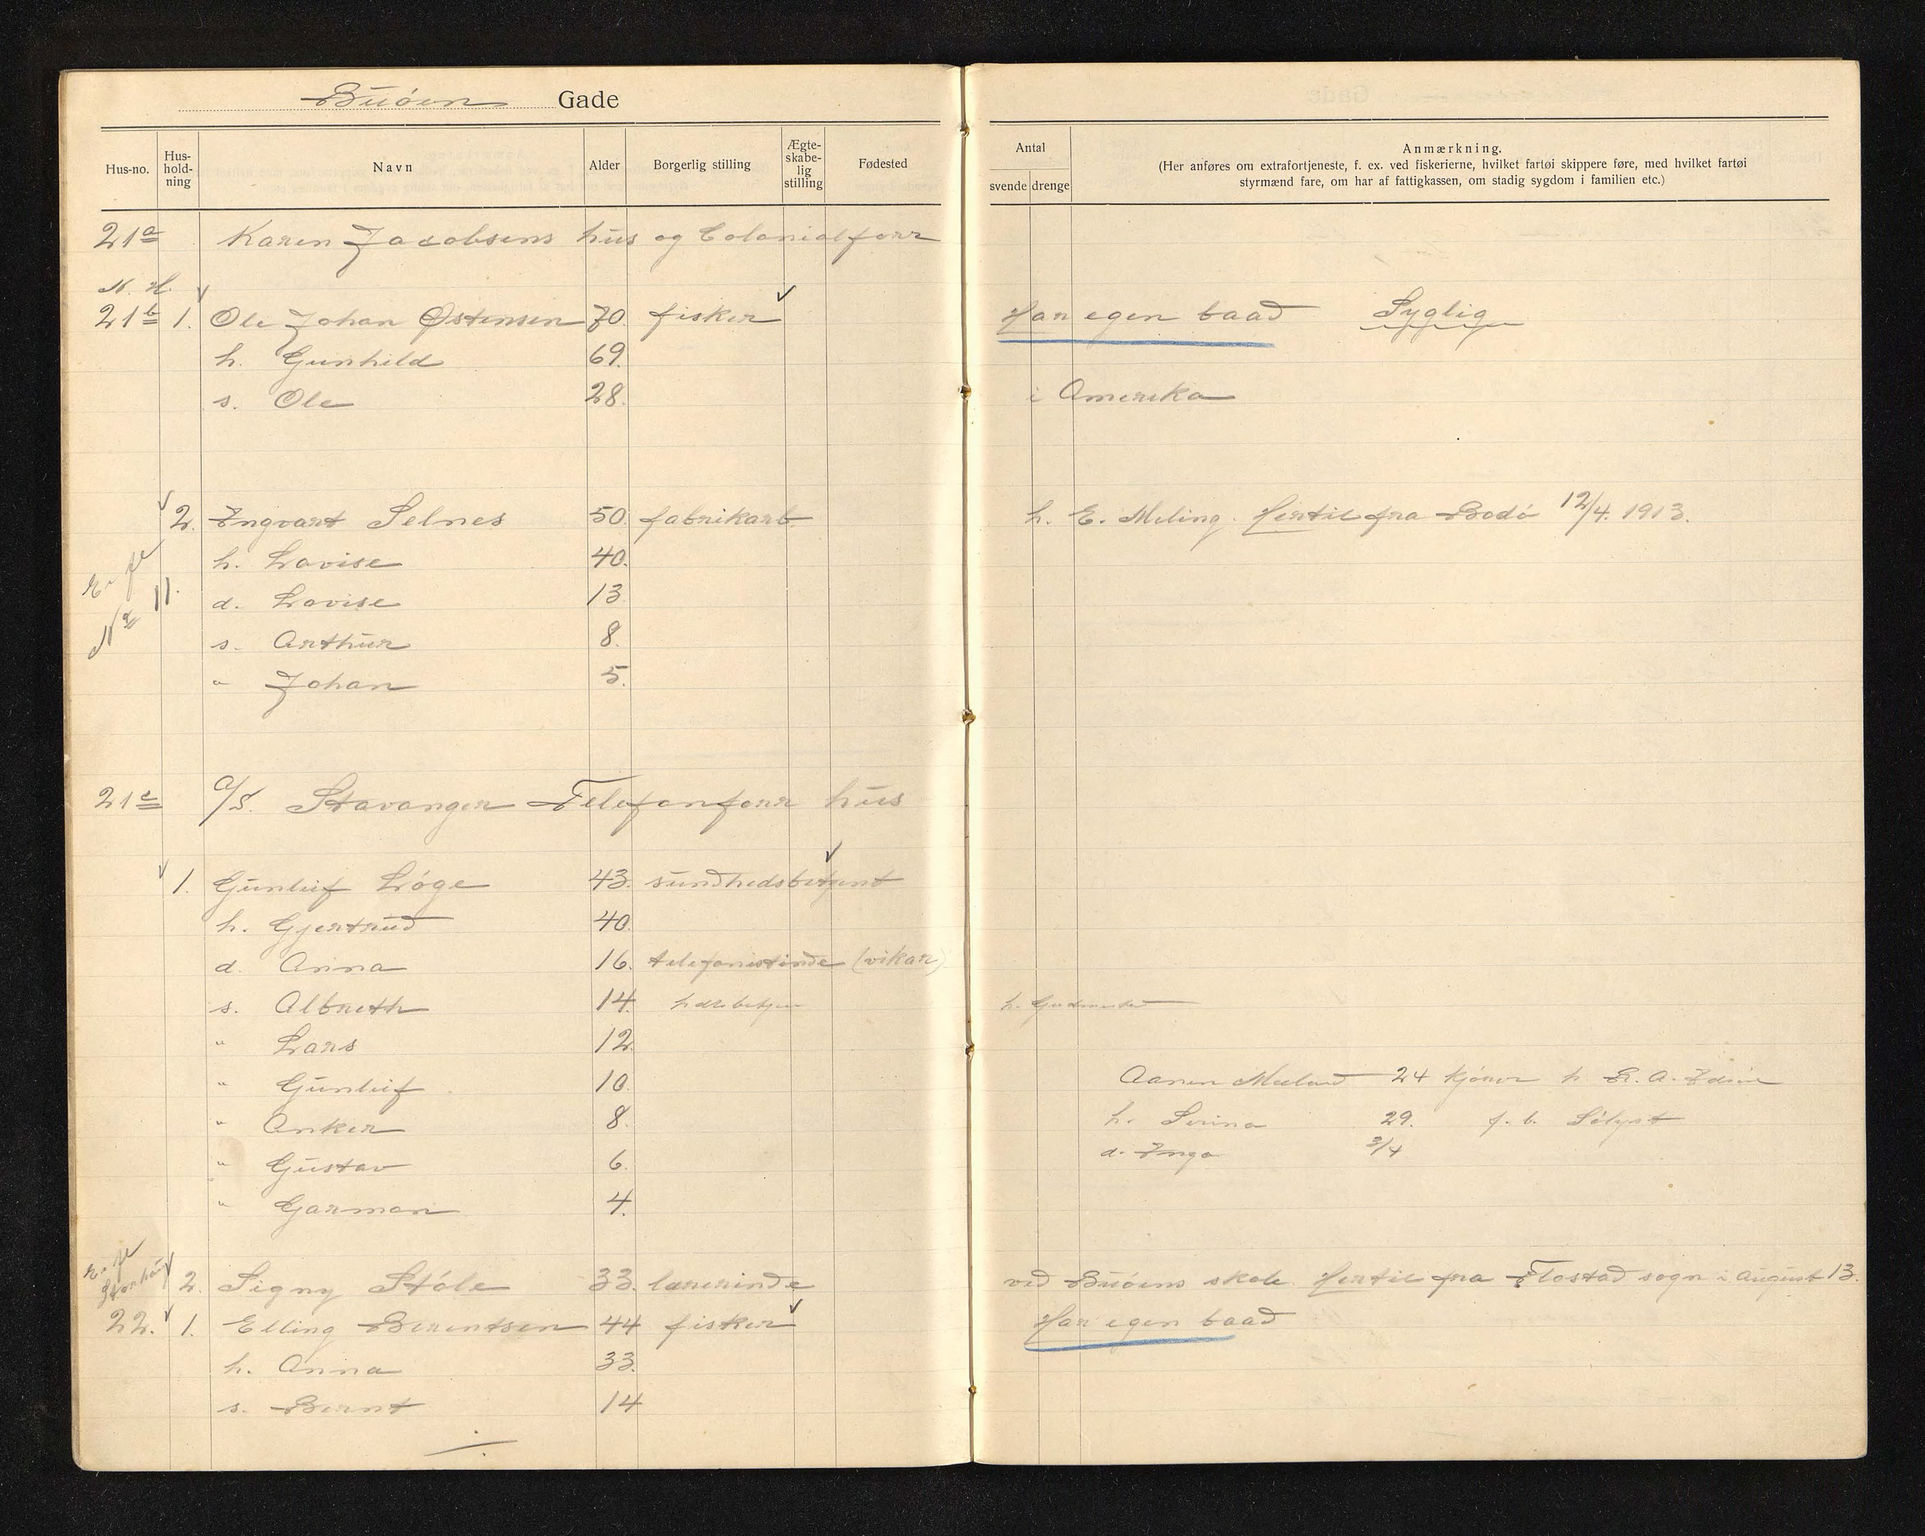 Buøen Gade
Hus-no.
Hus-
hold-
ning
Navn
Alder
Borgerlig stilling
Ægte-
skabe-
lig
stilling
Fødested
Antal
svende drenge
Anmærkning.
(Her anføres om extrafortjeneste, f. ex. ved fiskerierne, hvilket fartøi skippere føre, med hvilket fartøi
styrmænd fare, om har af fattigkassen, om stadig sygdom i familien etc.)
21a Karen Jacobsens hus og Colonialforr
N. H.
21b 1. Ole Johan Østensen 70 fisker Har egen baad Syglig
h. Gunhild 69.
s. Ole 28. i Amerika
2. Ingvart Selnes 50 fabrikarb h. E. Meling. Hertil fra Bodø 12/4. 1913.
h. Lovise 40.
11. d. Lovise 13
s. Arthur 8.
" Johan 5.
21c a/s. Stavanger Telefonforr hus
1. Gunleif Løge 43. sundhedsbetjent
h. Gjertrud 40.
d. Anna 16. telefonistinde (vikar)
s. Albreth 14. h.
" Lars 12.
" Gunleif 10. Aanen Meland 24 kjører h.
" Anker 8. h. Serina 29. f. b. Sølyst
" Gustav 6. d. Inga 3/4
" Garman 4.
2. Signy Støle 33. lærerinde ved Buøens skole. Hertil fra Flostad sogn i august 13.
22. 1. Elling Berentsen 44 fisker Har egen baad
h. Anna 33.
s. Bernt 14